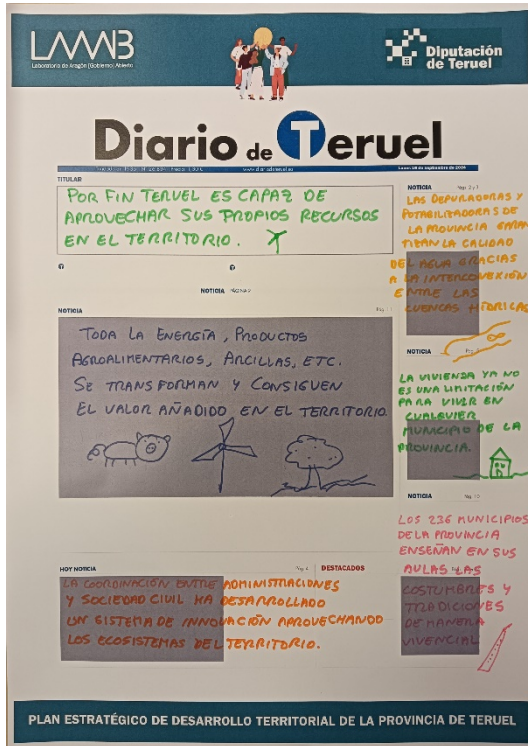 LAAAB
Laboratorio de Aragón [Gobierno] Abierto
Diputación
de Teruel
Diario de Teruel
www.diariodeteruel.es
TITULAR
POR FIN TERUEL ES CAPAZ DE
APROVECHAR SUS PROPIOS RECURSOS
EN EL TERRITORIO.
NOTICIA
NOTICIA
TODA LA ENERGÍA, PRODUCTOS
AGROALIMENTARIOS, ARCILLAS, ETC.
SE TRANSFORMAN Y CONSIGUEN
EL VALOR AÑADIDO EN EL TERRITORIO
HOY NOTICIA
LA COORDINACIÓN ENTRE ADMINISTRACIONES
Y SOCIEDAD CIVIL HA DESARROLLADO
UN SISTEMA DE INNOVACIÓN APROVECHANDO
LOS ECOSISTEMAS DEL TERRITORIO.
DESTACADOS
NOTICIA
LAS DEPURADORAS Y
POTABILIZADORAS DE
LA PROVINCIA GARAN
TIZAN LA CALIDAD
DEL AGUA GRACIAS
A LA INTERCONEXIÓN
ENTRE LAS
CUENCAS HÍDRICAS
NOTICIA
LA VIVIENDA YA NO
ES UNA LIMITACIÓN
PARA VIVIR EN
CUALQUIER
MUNICIPIO DE LA
PROVINCIA.
NOTICIA
LOS 236 MUNICIPIOS
DE LA PROVINCIA
ENSEÑAN EN SUS
AULAS LAS
COSTUMBRES Y
TRADICIONES
DE MANERA
VIVENCIAL
PLAN ESTRATÉGICO DE DESARROLLO TERRITORIAL DE LA PROVINCIA DE TERUEL